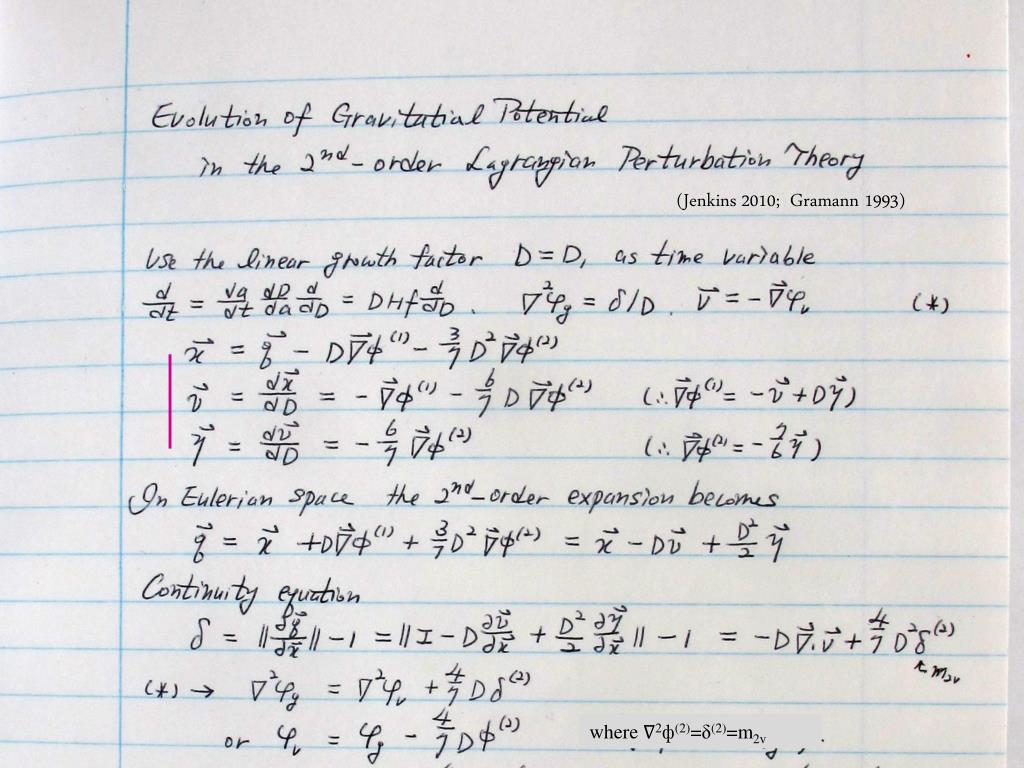 Evolution of Gravitatial Potential
in the 2nd-order Lagrangian Perturbation Theory
(Jenkins 2010; Gramann 1993)
Use the linear growth factor D = D, as time variable
d/dt = da/dt dD/da d/dD = DHf d/dD . ∇²φg = δ/D . v⃗ = -∇⃗φv (*)
x⃗ = q⃗ - D∇⃗ϕ⁽¹⁾ - 3/7 D² ∇⃗ϕ⁽²⁾
v⃗ = dx⃗/dD = - ∇⃗ϕ⁽¹⁾ - 6/7 D ∇⃗ϕ⁽²⁾ (∴ ∇⃗ϕ⁽¹⁾ = - v⃗ + Dη⃗)
η⃗ = dv⃗/dD = - 6/7 ∇⃗ϕ⁽²⁾ (∴ ∇⃗ϕ⁽²⁾ = - 7/6 η⃗)
In Eulerian space the 2nd-order expansion becomes
q⃗ = x⃗ + D∇⃗ϕ⁽¹⁾ + 3/7 D² ∇⃗ϕ⁽²⁾ = x⃗ - Dv⃗ + D²/2 η⃗
Continuity equation
δ = ||∂q⃗/∂x⃗|| - 1 = ||I - D ∂v⃗/∂x⃗ + D²/2 ∂η⃗/∂x⃗|| - 1 = -D∇⃗.v⃗ + 4/7 D²δ⁽²⁾
↖ m2v
(*) → ∇²φg = ∇²φv + 4/7 Dδ⁽²⁾
or φv = φg - 4/7 Dϕ⁽²⁾ where ∇²ϕ⁽²⁾=δ⁽²⁾=m2v